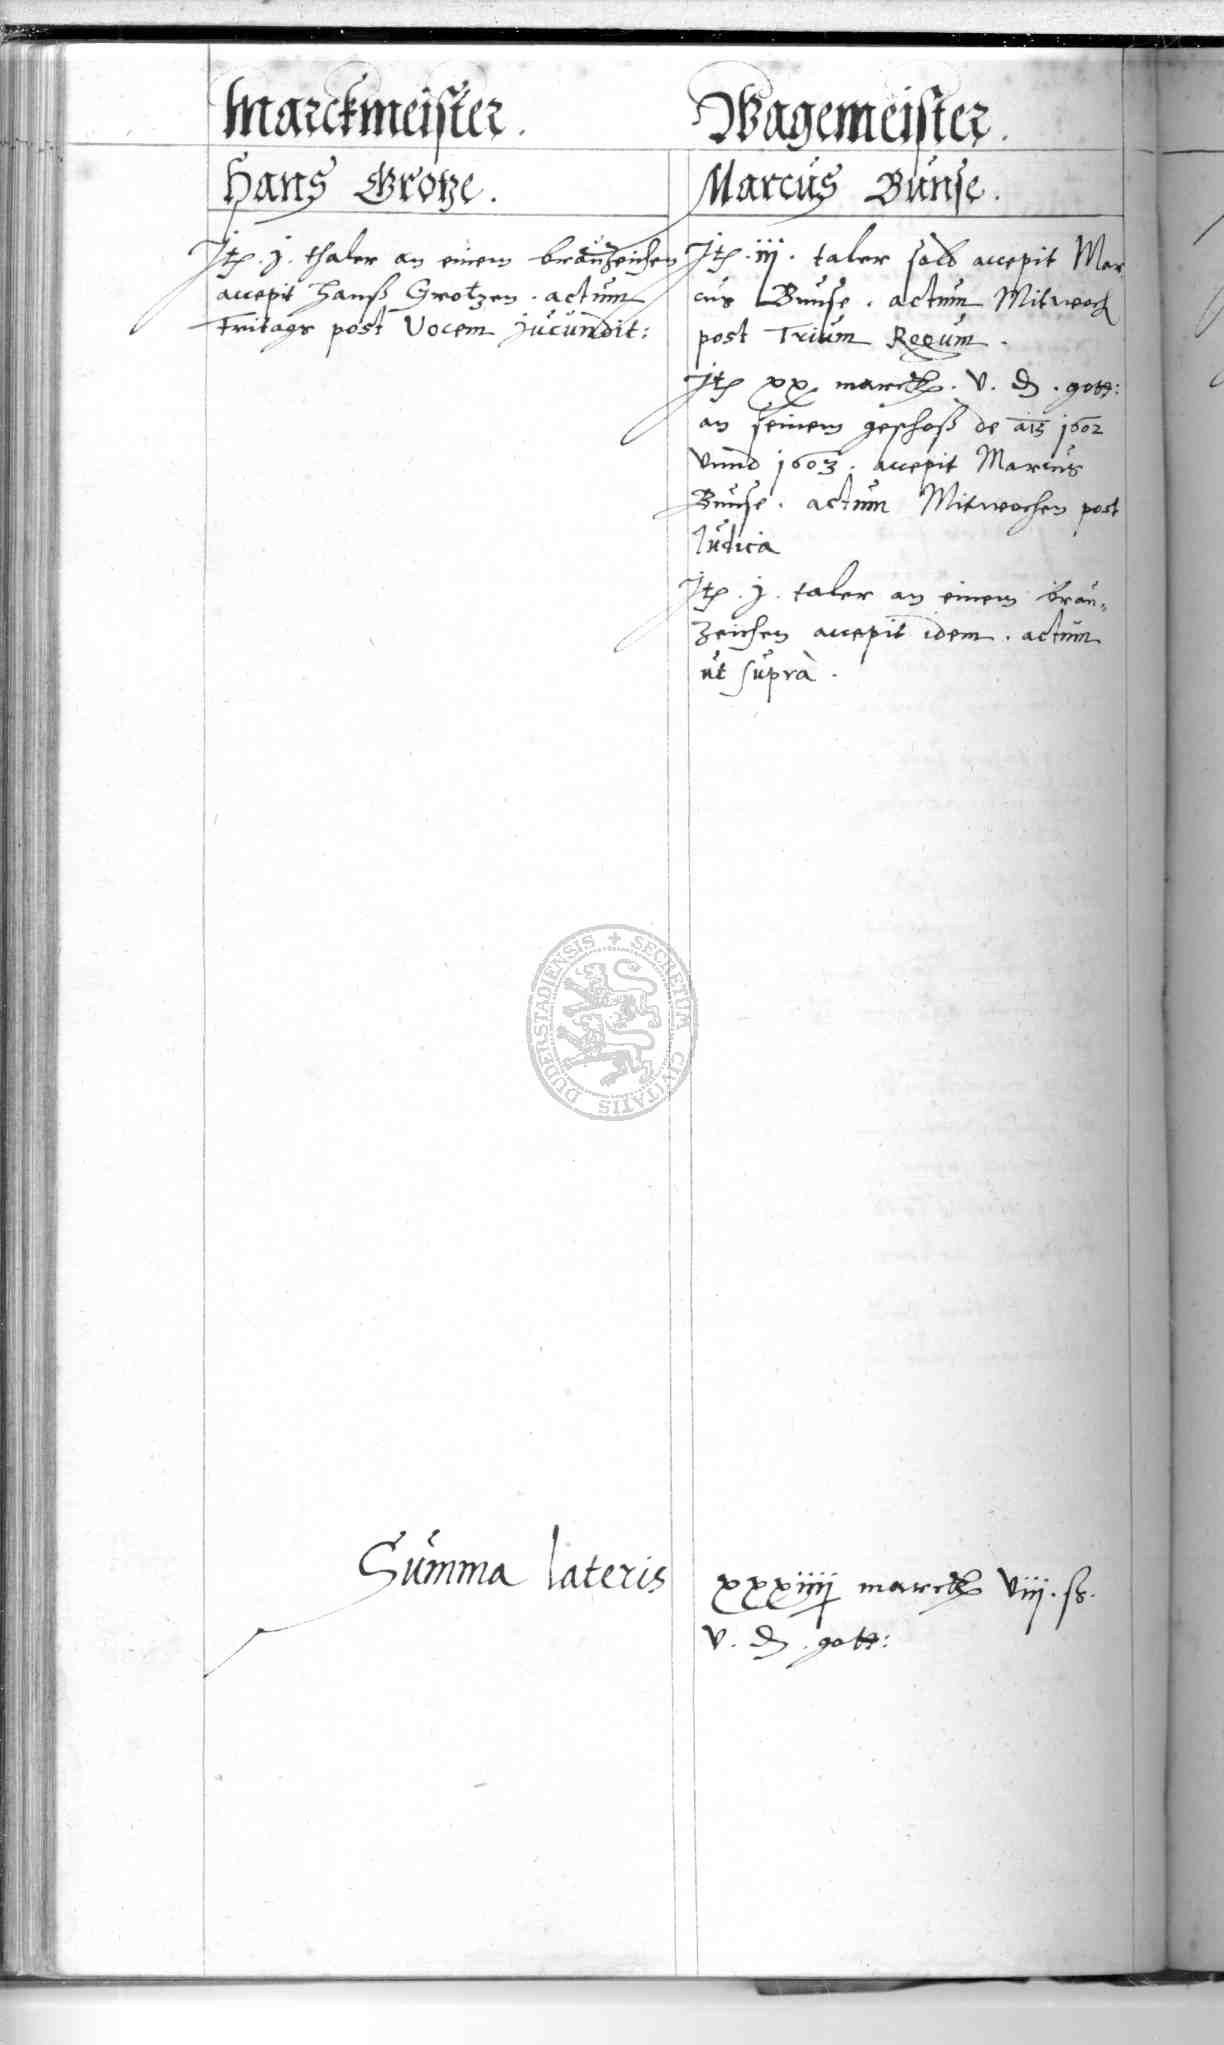 Marckmeister.
Hans Grotze.
Jtem .j. thaler an einem brauzeichen
accepit Hanß Grotzen . actum
Fritags post Vocem Jucundit:
Wagemeister.
Marcus Bunse.
Jtem .iij. taler sold accepit Mar
cus Bunse . actum Mitwoch
post Trium Regum .
Jtem xx marck . v . ₰ . gott:
an seinem geschoß de ais 1602
vnnd 1603 . accepit Marcus
Bunse . actum Mitwochen post
Judica
Jtem .j. taler an einem brau-
zeichen accepit idem . actum
ut supra .
SECRETUM CIVITATIS DUDERSTADIENSIS
Summa lateris
xxxiiij marck viij . ß.
v . ₰ . gott: